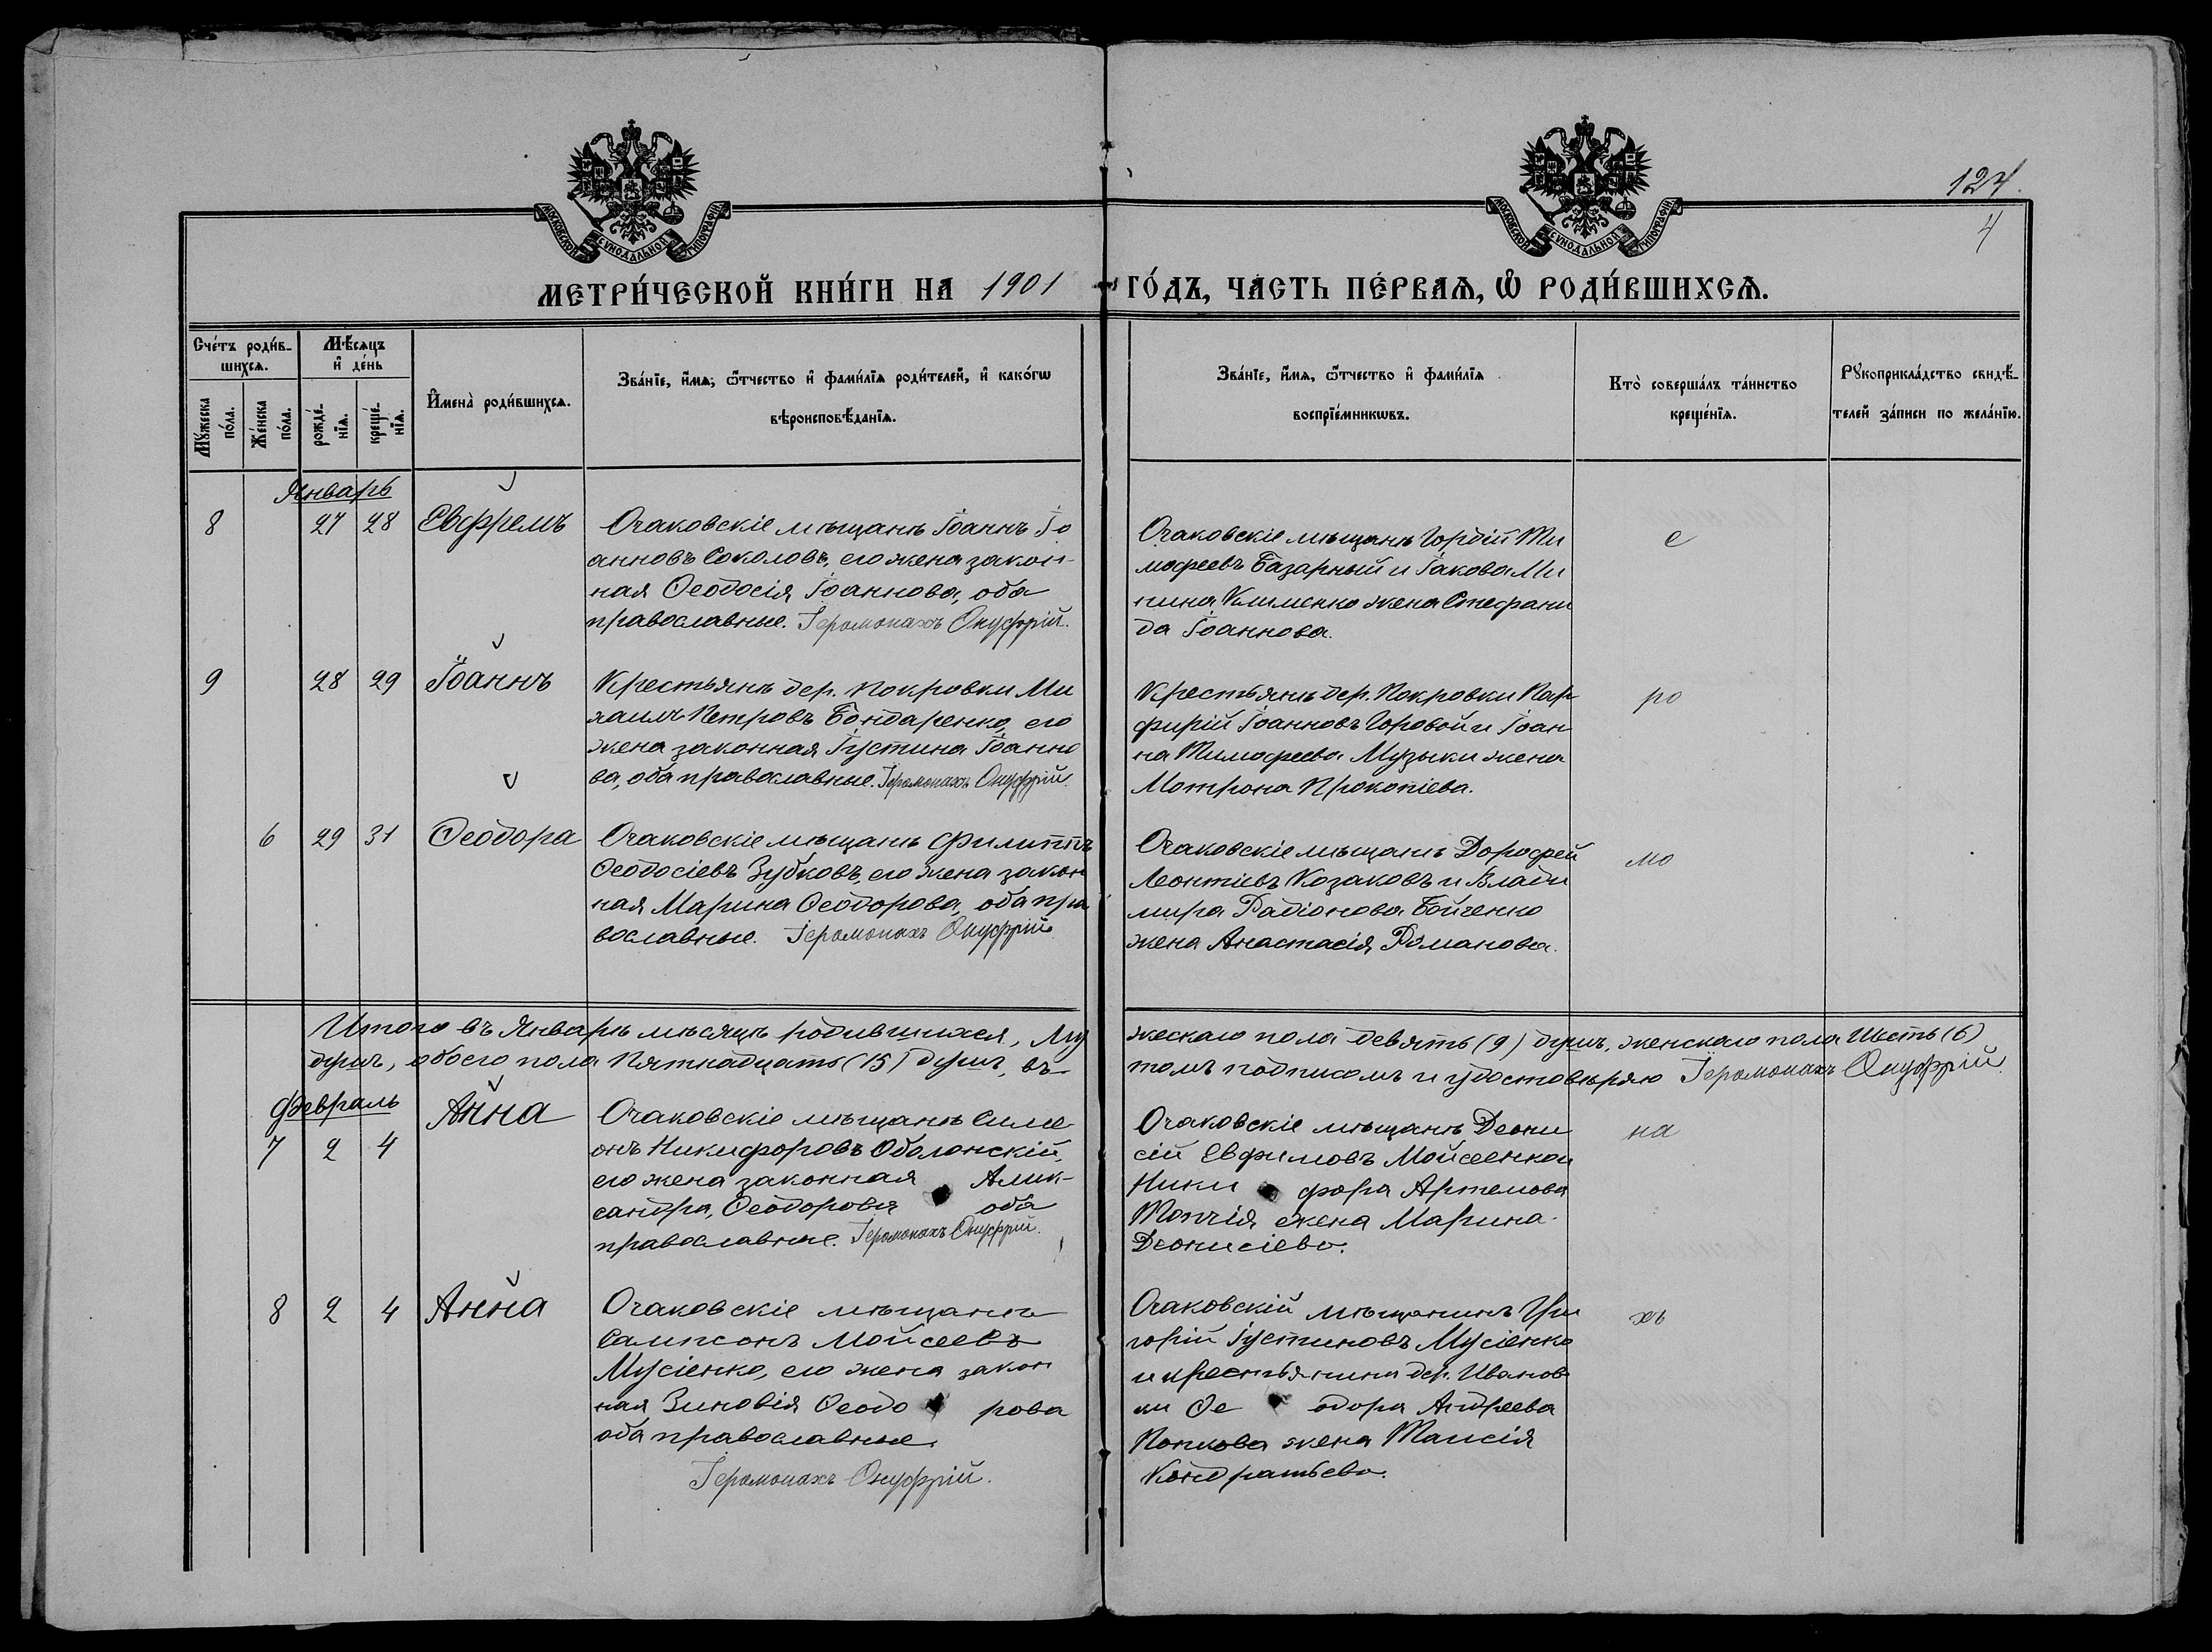 124.
4
МОСКОВСКОЙ СѴНОДАЛЬНОЙ ТИПОГРАФІИ
МОСКОВСКОЙ СѴНОДАЛЬНОЙ ТИПОГРАФІИ
МЕТРИ́ЧЕСКОЙ КНИ́ГИ НА 1901 ГО́ДЪ, ЧА́СТЬ ПЕ́РВАѦ, Ѡ РОДИ́ВШИХСѦ.
Сче́тъ роди́в-
шихсѧ.
Мꙋ́жеска по́ла.
Же́нска по́ла.
Мѣ́сѧцъ
и де́нь
рожде́-нїѧ.
креще́-нїѧ.
Имена̀ роди́вшихсѧ.
Зва́нїе, и́мѧ, ѻ́тчество и фами́лїѧ роди́телей, и како́гѡ
вѣроисповѣ́данїѧ.
Зва́нїе, и́мѧ, ѻ́тчество и фами́лїѧ
воспрїе́мникѡвъ.
Кто̀ соверша́лъ та́инство
креще́нїѧ.
Рꙋкоприкла́дство свидѣ́-
телей за́писи по жела́нїю.
Январь
8 27 28 Евфремъ
Очаковскіе мѣщане Іоаннъ Іо
анновъ Соколовъ, его жена закон-
ная Ѳеодосія Іоаннова, оба
православные. Іеромонахъ Онуфрій.
Очаковскіе мѣщане Гордій Ти
мофеевъ Базарный и Іакова Ми
нина Клименко жена Стефани
да Іоаннова.
е
9 28 29 Іоаннъ
Крестьяне дер. Покровки Ми
хаилъ Петровъ Бондаренко, его
жена законная Іустина Іоанно
ва, оба православные. Іеромонахъ Онуфрій.
Крестьяне дер. Покровки Пор
фирій Іоанновъ Горовой и Іоан
на Тимофеева Музыки жена
Мотрона Прокопіева.
ро
6 29 31 Ѳеодора
Очаковскіе мѣщане Филиппъ
Ѳеодосіевъ Зубковъ, его жена закон
ная Марина Ѳеодорова, оба пра
вославные. Іеромонахъ Онуфрій
Очаковскіе мѣщане Дорофей
Леонтіевъ Козаковъ и Влади
мира Радіонова Бойченко
жена Анастасія Романова.
мо
Итого въ Январѣ мѣсяцѣ родившихся, му
жескаго пола девять (9) душъ, женскаго пола Шесть (6)
душъ, обоего пола Пятнадцать (15) душъ, въ
томъ подписомъ и удостовѣряю Іеромонахъ Онуфрій.
Февраль
7 2 4 Анна
Очаковскіе мѣщане Симе
онъ Никифоровъ Оболонскій,
его жена законная Алек-
сандра, Ѳеодорова оба
православные. Іеромонахъ Онуфрій.
Очаковскіе мѣщане Деони
сій Евфимовъ Мойсеенко и
Ники фора Артемова
Топчія жена Марина
Деонисіева.
на
8 2 4 Анна
Очаковскіе мѣщане
Сампсонъ Мойсеевъ
Мусіенко, его жена закон
ная Зиновія Ѳеодо рова
оба православные.
Іеромонахъ Онуфрій.
Очаковскій мѣщанинъ Гри
горій Іустиновъ Мусіенко
и крестьянина дер. Иванов
ки Ѳе одора Андреева
Попкова жена Таисія
Кондратьева.
хъ